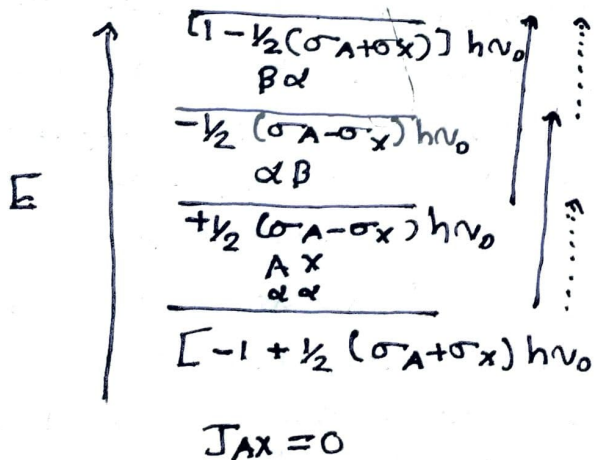 [1 - ½(σA+σX)] hν₀
βα
-½ (σA-σX) hν₀
αβ
E
+½ (σA-σX) hν₀
A X
α α
[-1 + ½ (σA+σX) hν₀
JAX = 0